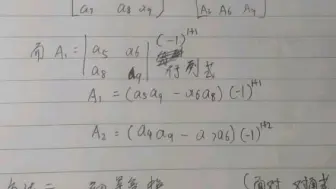 a₇ a₈ a₉ A₃ A₆ A₉
而 A₁ = | a₅ a₆ | (-1)¹⁺¹
| a₈ a₉ | 行列式
A₁ = (a₅a₉ - a₆a₈)(-1)¹⁺¹
A₂ = (a₄a₉ - a₇a₆)(-1)¹⁺²